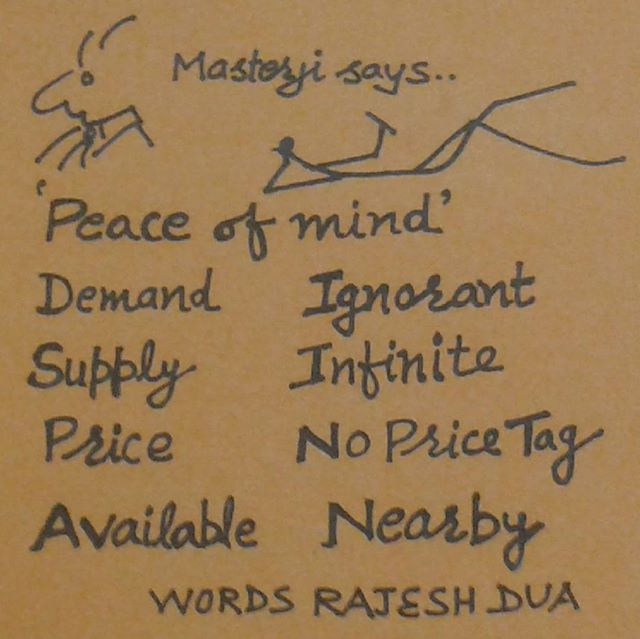 Masterji says..
'Peace of mind'
Demand Ignorant
Supply Infinite
Price No Price Tag
Available Nearby
WORDS RAJESH DUA